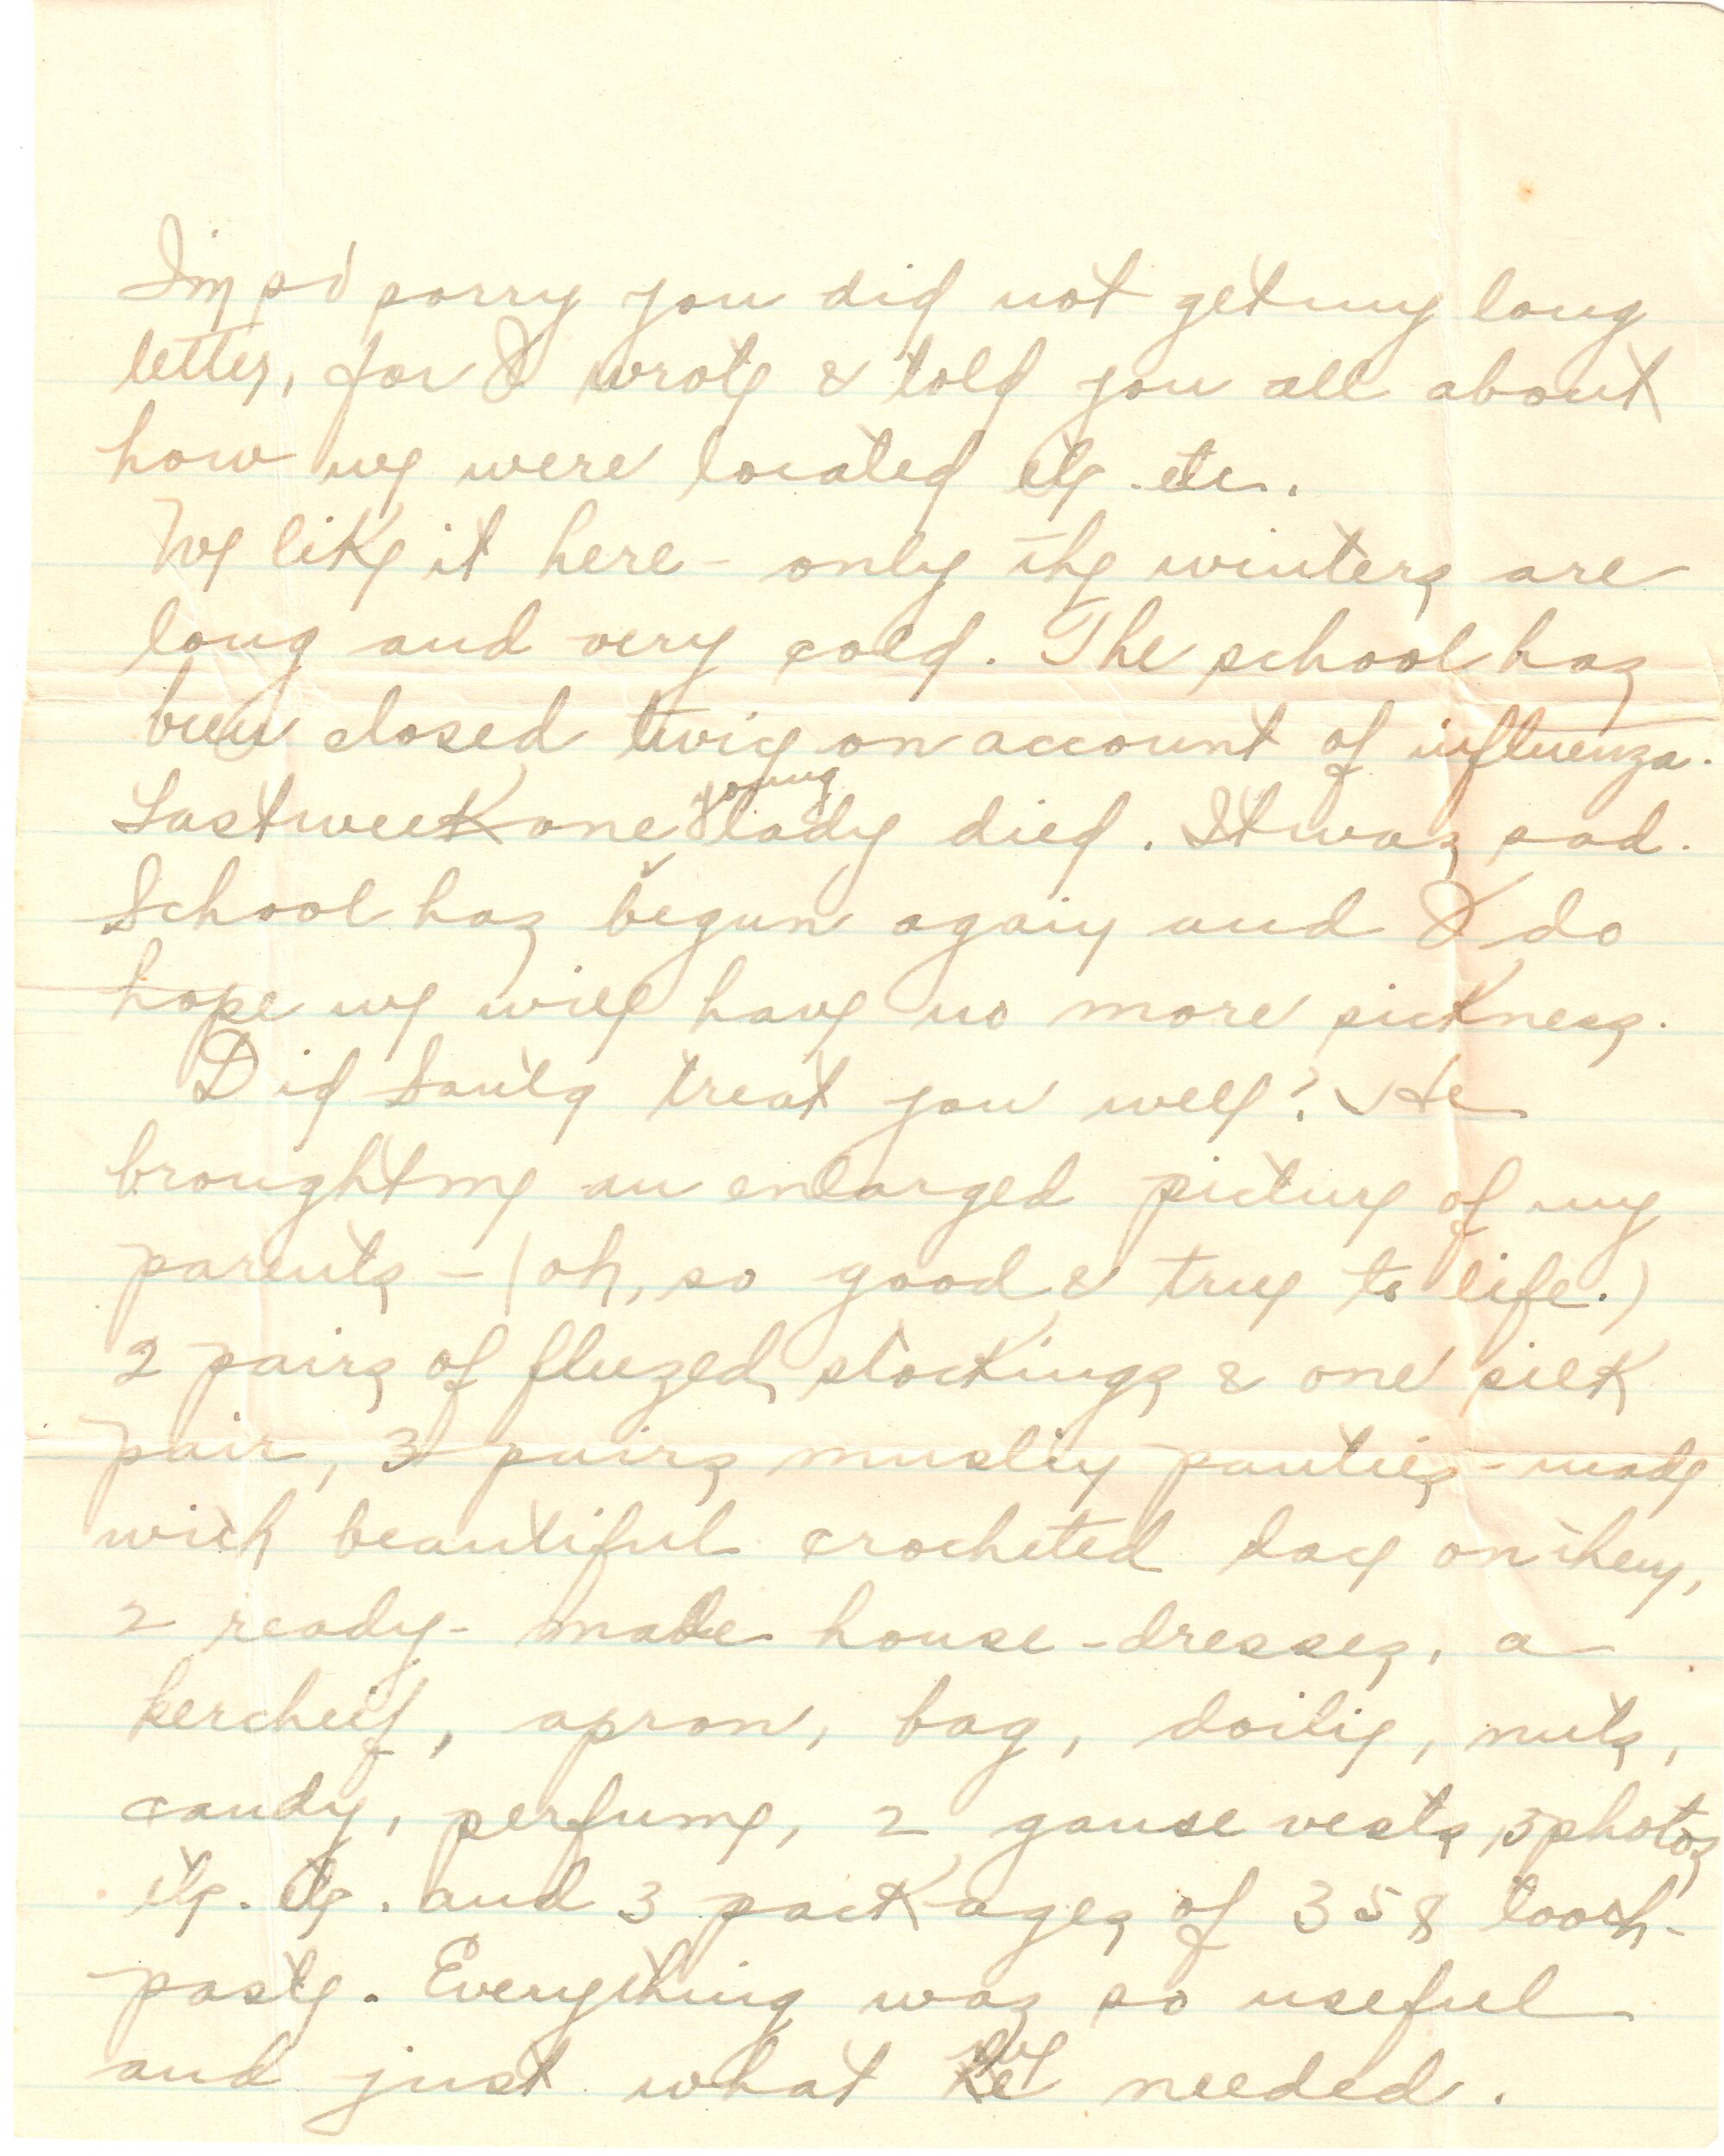 I'm so sorry you did not get my long
letter, for I wrote & told you all about
how we were located etc. etc.
We like it here - only the winters are
long and very cold. The school has
been closed twice on account of influenza.
Last week one young lady died. It was sad.
School has begun again and I do
hope we will have no more sickness.
Did Santa treat you well? He
brought me an enlarged picture of my
parents - (oh, so good & true to life.)
2 pairs of fleezed stockings & one silk
pair, 3 pairs muslin panties - made
with beautiful crocheted lace on them,
2 ready-made house-dresses, a
kercheif, apron, bag, doilie, nuts,
candy, perfume, 2 gause vests, 3 photos
etc. etc. and 3 packages of 35¢ tooth-
paste. Everything was so useful
and just what we needed.